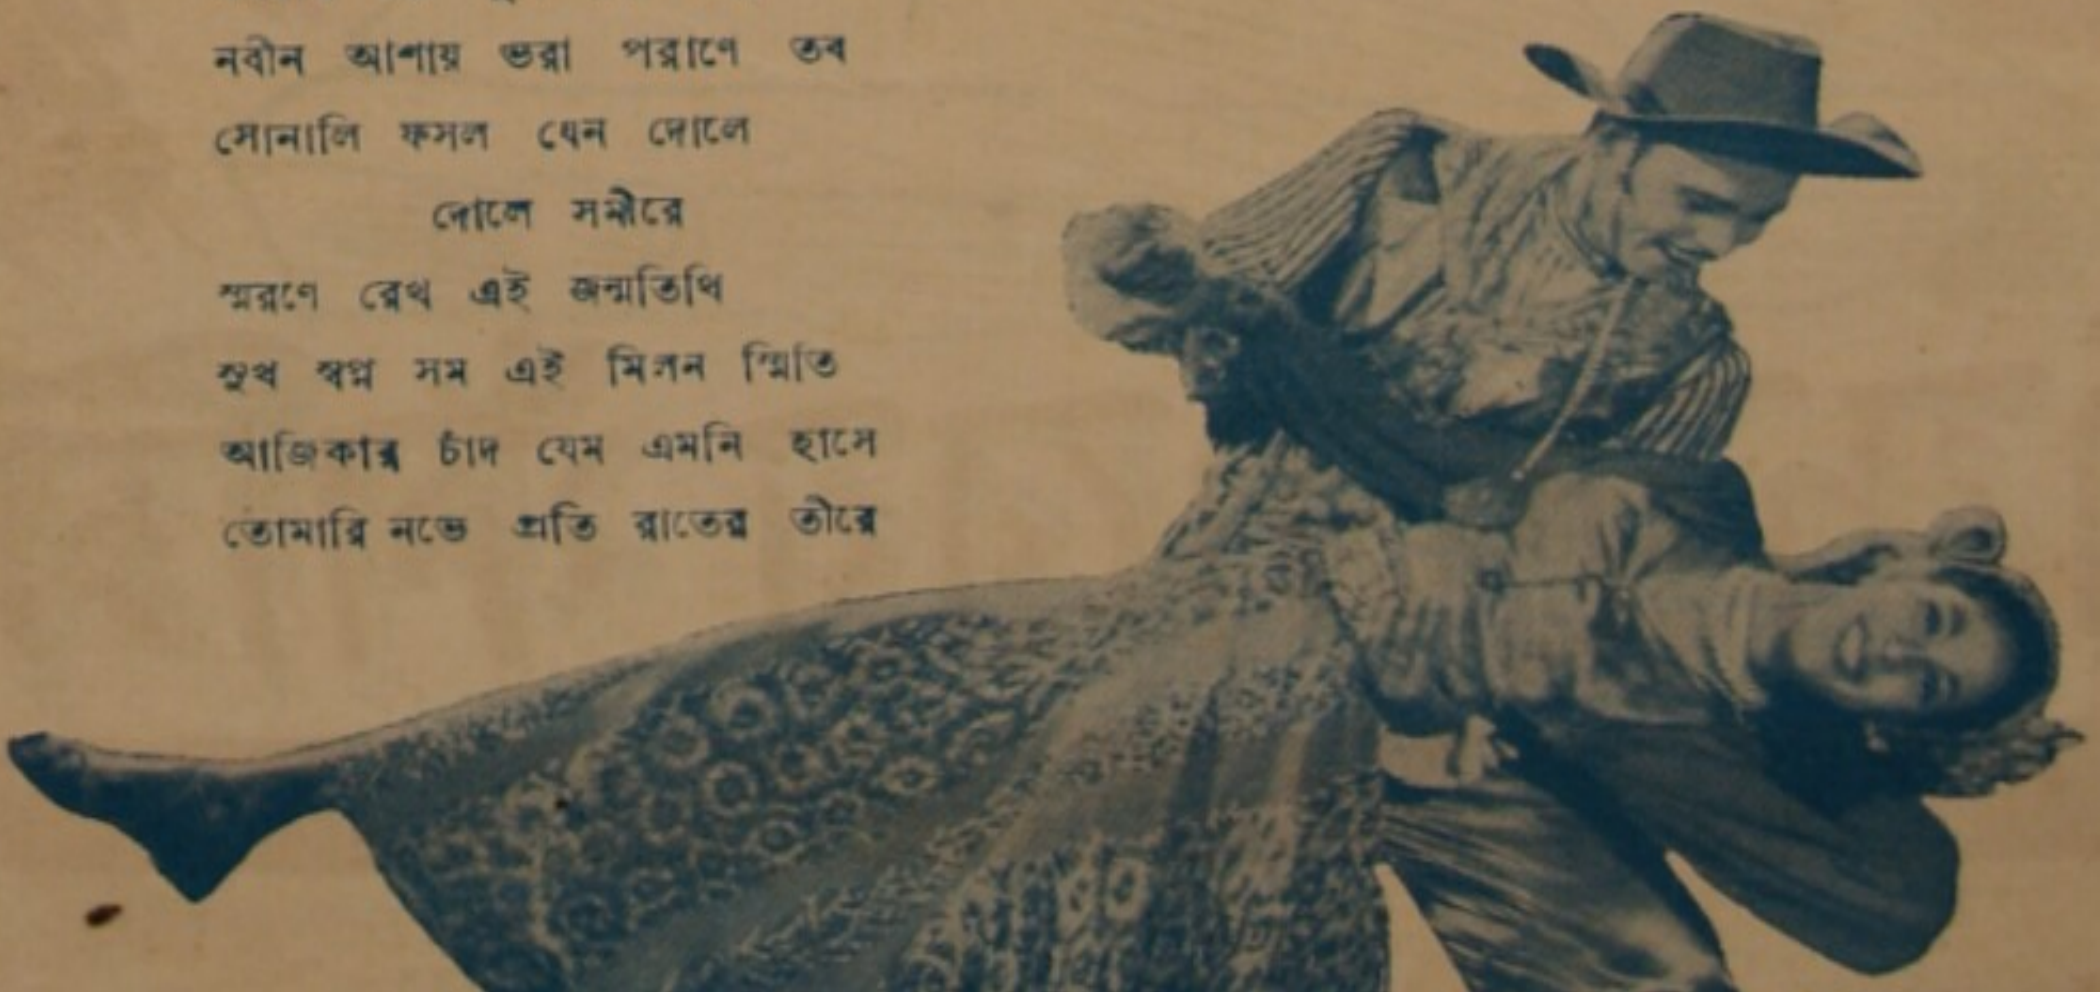 নবীন আশায় ভরা পরাণে তব
সোনালি ফসল যেন দোলে
দোলে সমীরে
স্মরণে রেখ এই জন্মতিথি
সুখ স্বপ্ন সম এই মিলন স্মিতি
আজিকার চাঁদ যেম এমনি হাসে
তোমারি নভে প্রতি রাতের তীরে